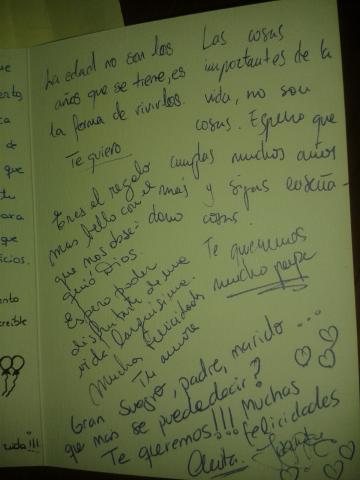 ue
a
de
que
tu
ara
que
icios.
ento
creible
vida!!!
La edad no son los
años que se tiene, es
la forma de vivirlos.
Te quiero
Las cosas
importantes de la
vida, no son
cosas. Espero que
cumplas muchos años
y sigas enseña-
cosas.
Te queremos
mucho
Eres el regalo
mas bello con el
que nos obse-
quió Dios.
Espero poder
disfrute de una
vida larguísima.
Muchas felicidades
Tu
Gran suegro, padre, marido ...
que más se puede decir?
Te queremos!!! Muchas
felicidades